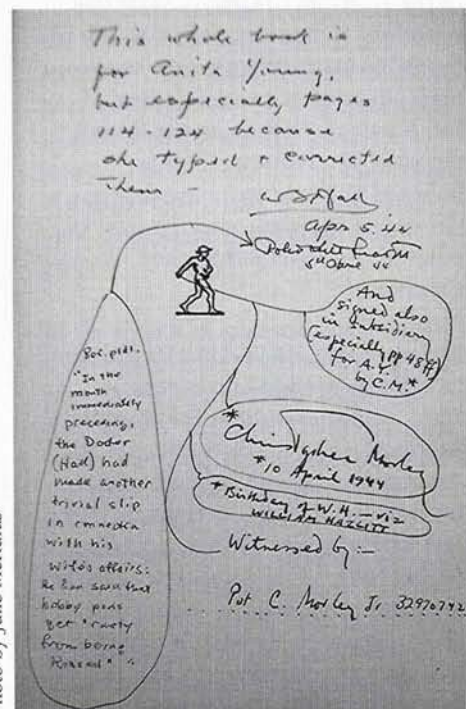 This whole book is
for Anita Young,
but especially pages
114-124 because
she typed & corrected
them -
Apr 5. 44
5th April 44
And
signed also
in subsidiary
(especially pp 48 ff)
for A.Y.
by C.M.*
"In the
month
immediately
preceding,
the Doctor
(Hall) had
made another
trivial slip
in connection
with his
wife's affairs:
said that
hobby
get "rusty
from being
*Christopher Morley
*10 April 1944
*Birthday of W.H. - viz
WILLIAM HAZLITT
Witnessed by:-
Pvt C. Morley Jr 32970742